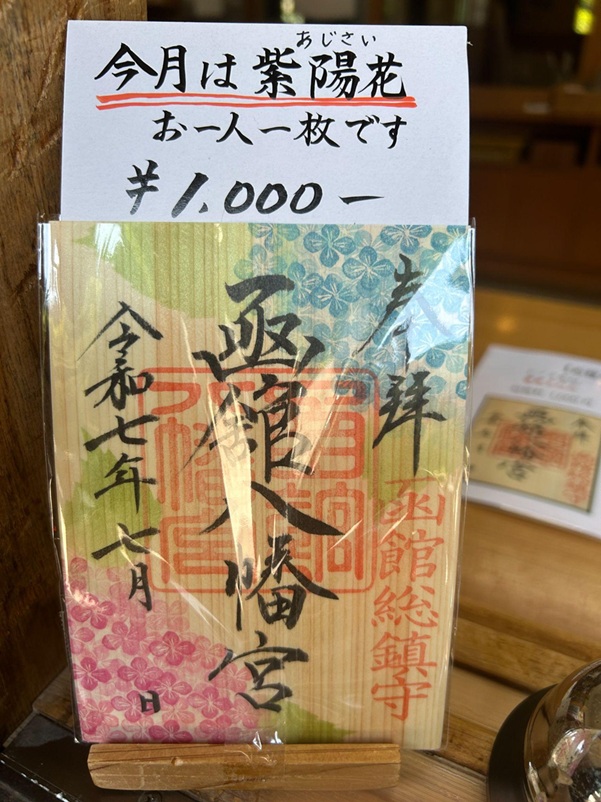 あじさい
今月は紫陽花
お一人一枚です
¥1,000-
奉拝
函館総鎮守
函館八幡宮
令和七年七月
日